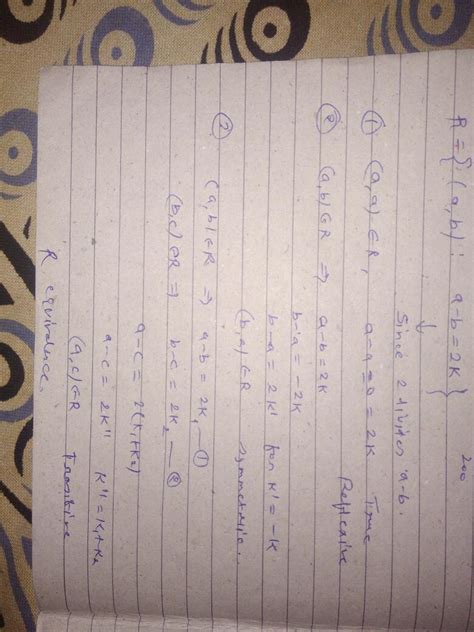 200
R = { (a,b) : a-b = 2k }
↓
Since 2 divides a-b.
① (a,a) ∈ R, a-a = 0 = 2k True
Reflexive
② (a,b) ∈ R ⇒ a-b = 2k
b-a = -2k
b-a = 2k' for k' = -k
(b,a) ∈ R symmetric.
② (a,b) ∈ R ⇒ a-b = 2k₁ —①
(b,c) ∈ R ⇒ b-c = 2k₂ —②
a-c = 2(k₁+k₂)
a-c = 2k'' k'' = k₁+k₂
(a,c) ∈ R Transitive
R equivalence.